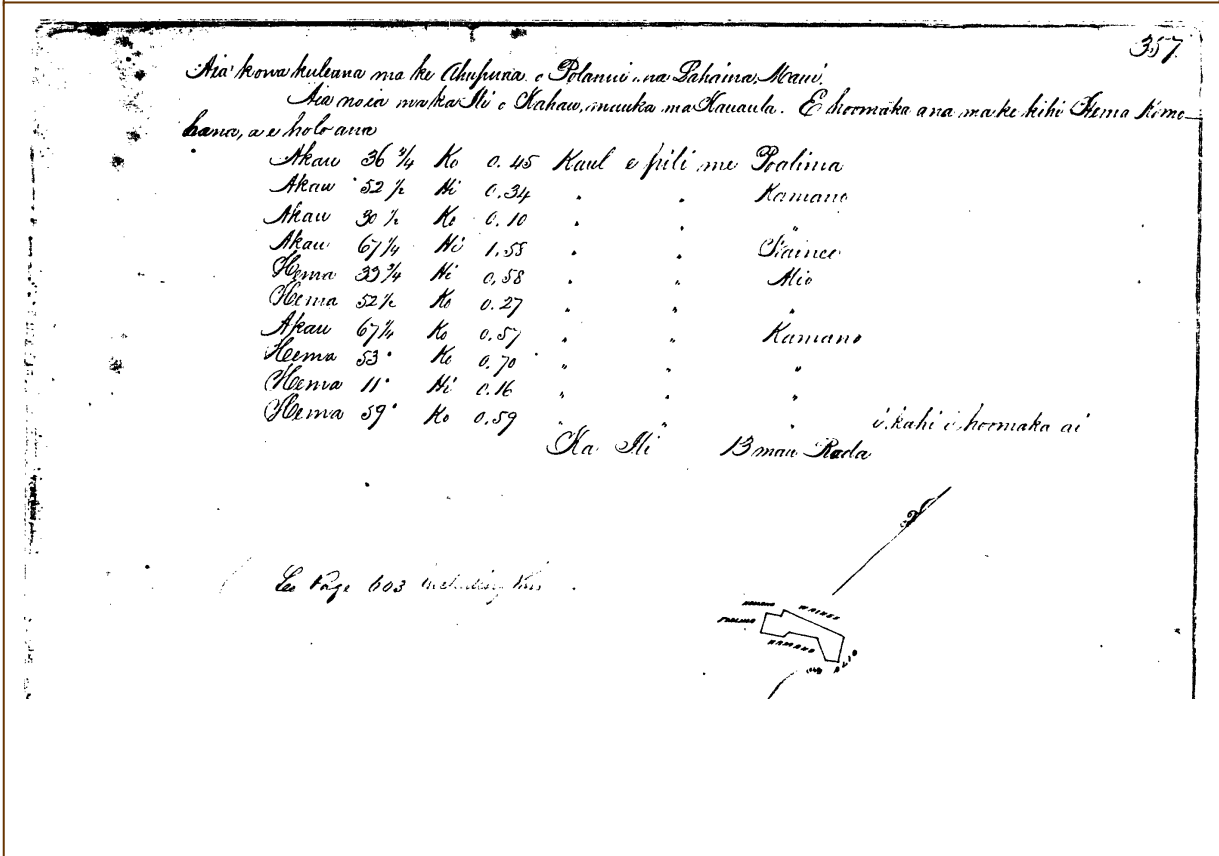 357
Aia kona kuleana ma ke Ahupuaa o Polanui ma Lahaina, Maui.
Aia no ia ma ka Ili o Kahau, mauka ma Kauaula. E hoomaka ana ma ke kihi Hema Komo-
hana, a e holo ana
Akau 36 3/4 Ko 0.45 Kaul e pili me Poalima
Akau 52 1/2 Hi 0.34 " " Kamano
Akau 30 1/2 Ko 0.10 " " "
Akau 67 1/4 Hi 1.58 " "
Hema 33 3/4 Hi 0.58 " " Alio
Hema 52 1/2 Ko 0.27 " " "
Akau 67 1/4 Ko 0.57 " " Kamano
Hema 53° Ko 0.70 " " "
Hema 11° Hi 0.16 " " "
Hema 59° Ko 0.59 " " " i kahi i hoomaka ai
Ka Ili 13 mau Roda
See Page 603 including this
POALIMA
WAINEE
KAMANO
ALIO